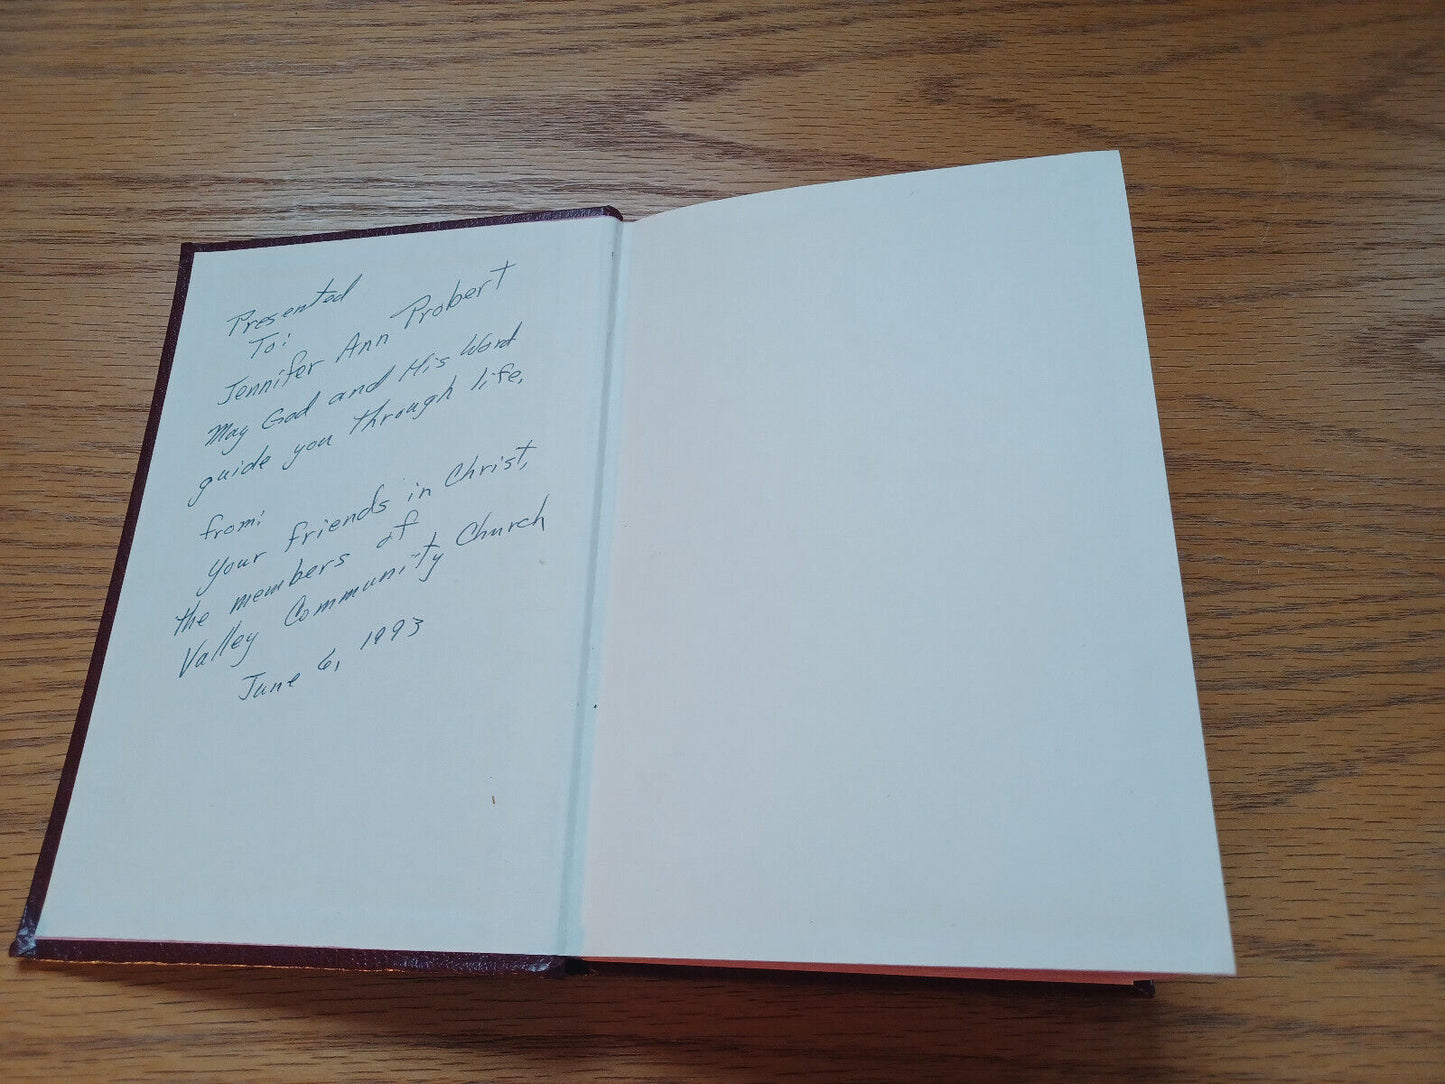 Presented
To:
Jennifer Ann Probert
May God and His Word
guide you through life.
from:
your friends in Christ,
the members of
Valley Community Church
June 6, 1993